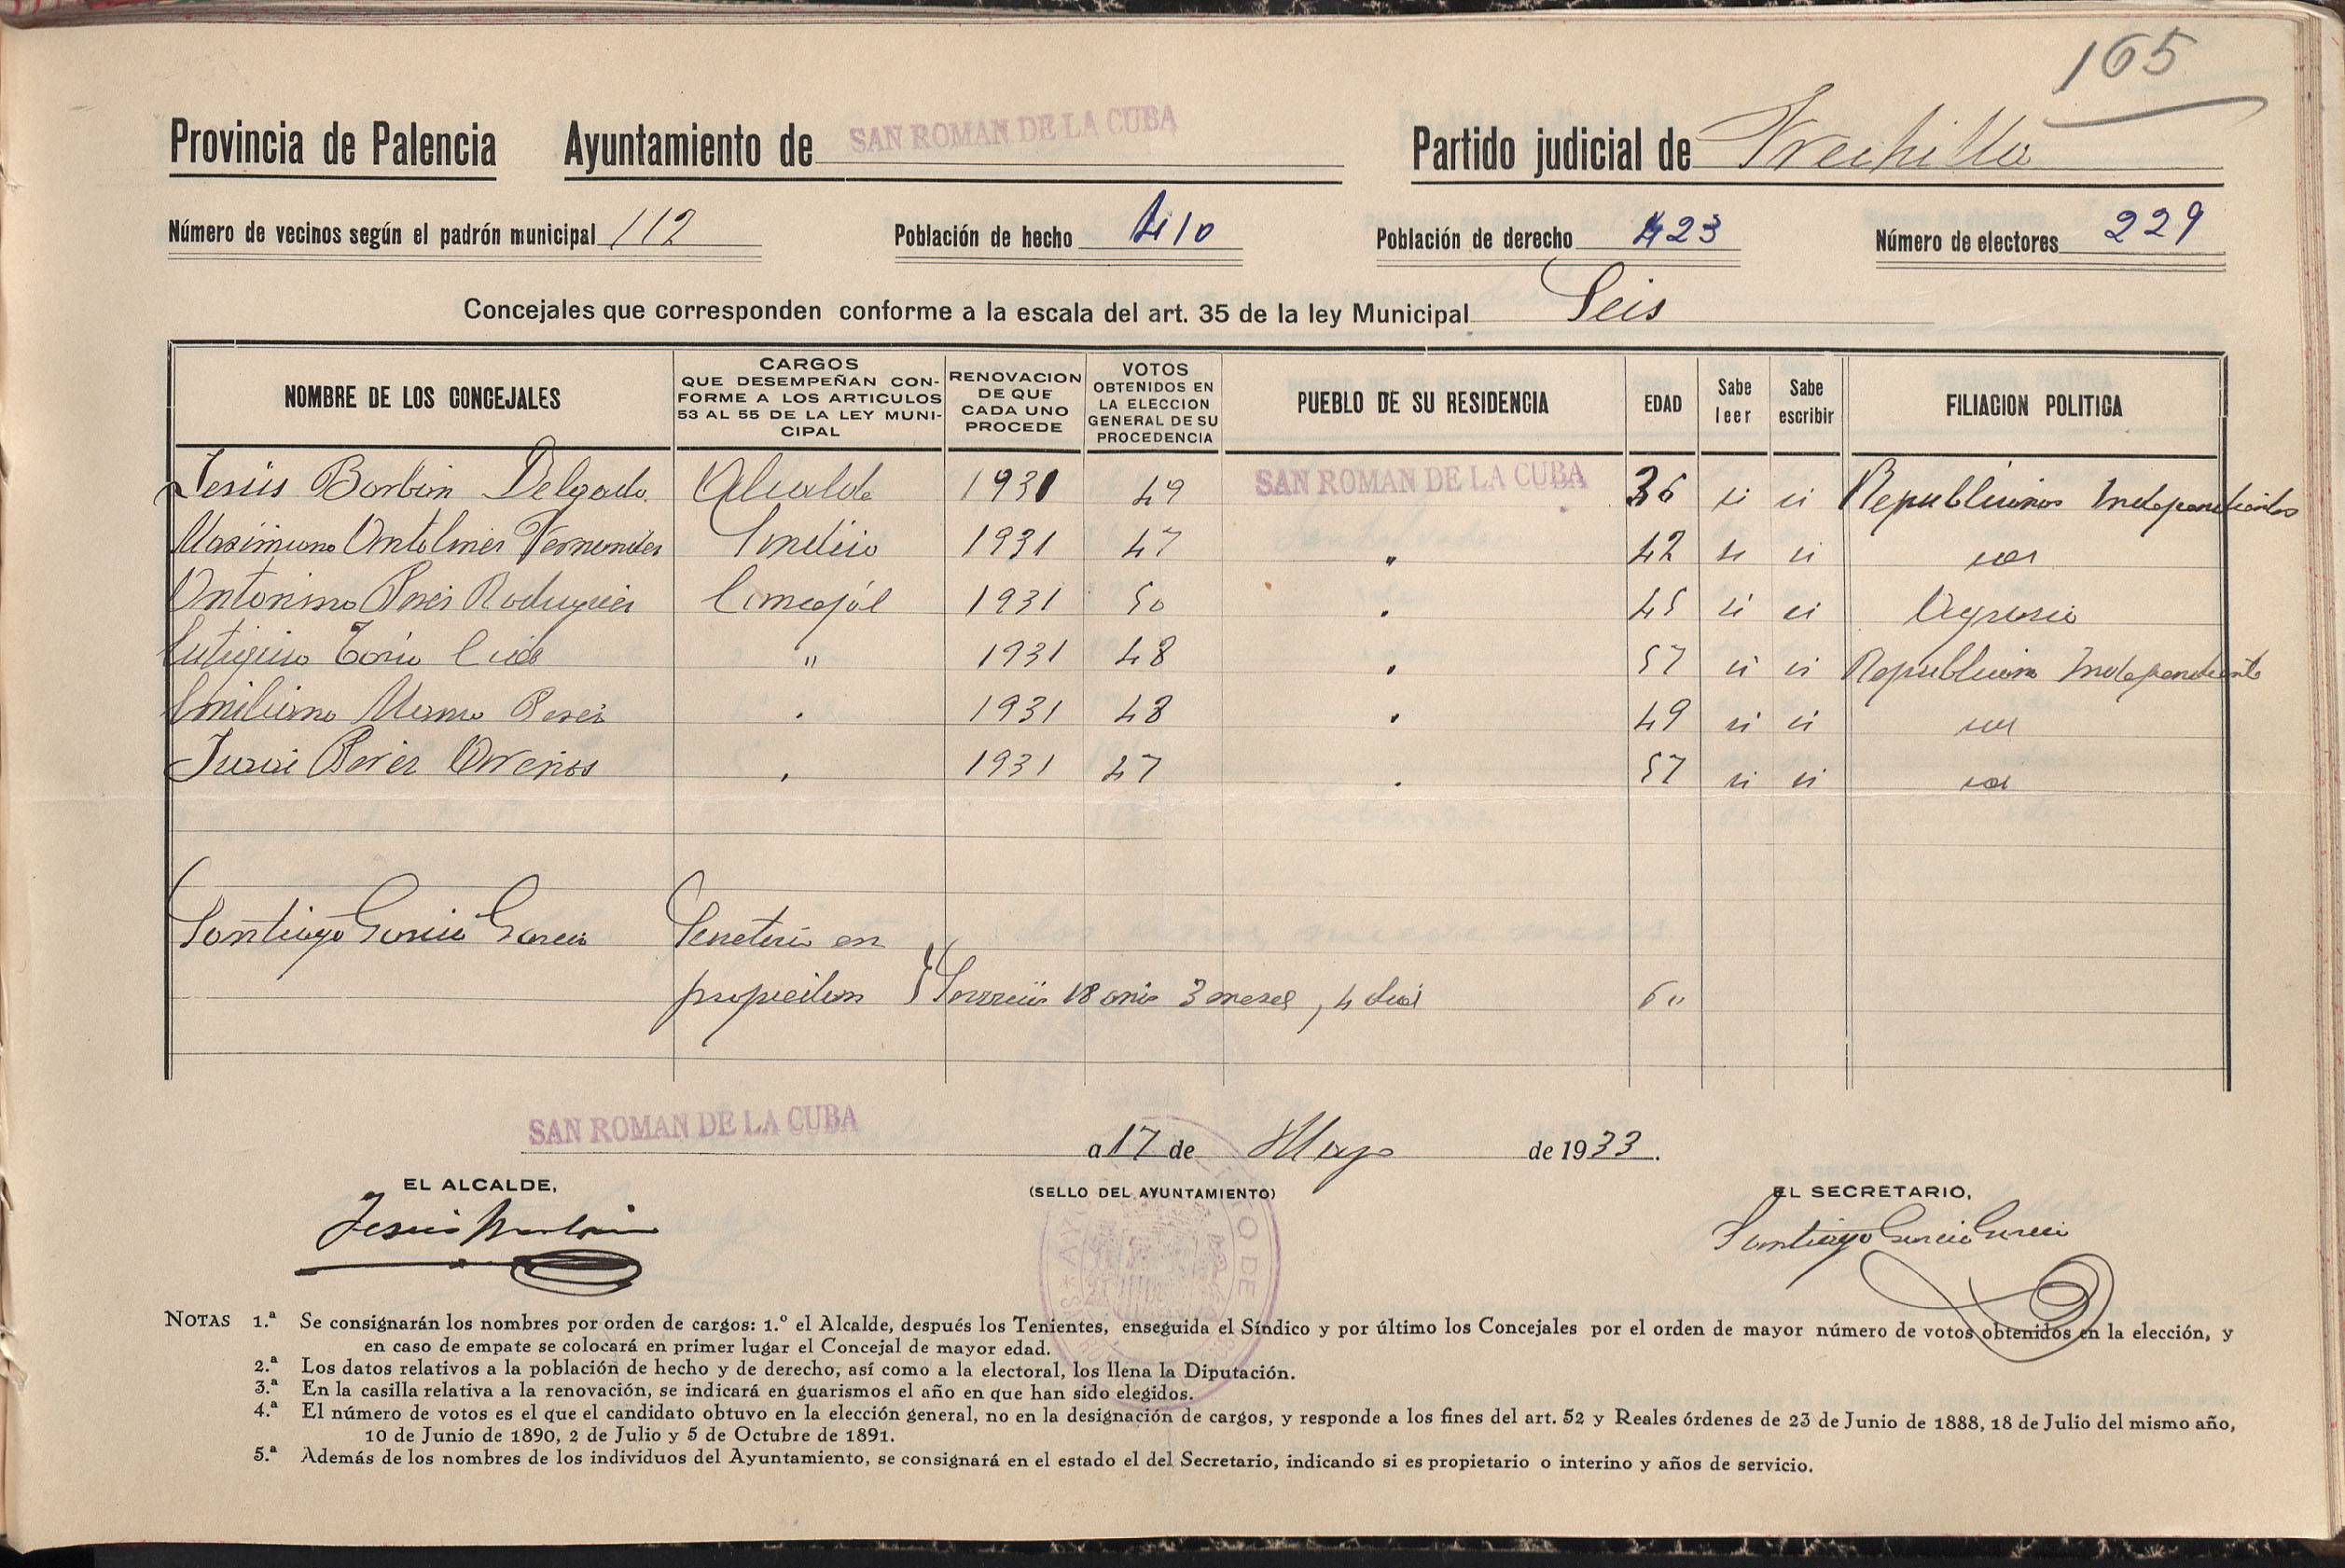 165
Provincia de Palencia Ayuntamiento de SAN ROMAN DE LA CUBA Partido judicial de Frechilla
Número de vecinos según el padrón municipal 112 Población de hecho 410 Población de derecho 423 Número de electores 229
Concejales que corresponden conforme a la escala del art. 35 de la ley Municipal Seis
NOMBRE DE LOS CONCEJALES
CARGOS
QUE DESEMPEÑAN CON-
FORME A LOS ARTICULOS
53 AL 55 DE LA LEY MUNI-
CIPAL
RENOVACION
DE QUE
CADA UNO
PROCEDE
VOTOS
OBTENIDOS EN
LA ELECCION
GENERAL DE SU
PROCEDENCIA
PUEBLO DE SU RESIDENCIA
EDAD
Sabe
leer
Sabe
escribir
FILIACION POLITICA
Jesús Barbán Delgado Alcalde 1931 49 SAN ROMAN DE LA CUBA 36 si si Republicanos Independientes
Maximiano Antolinez Fernandez Sindico 1931 47 " 42 si si
Antonino Perez Rodriguez Concejál 1931 50 " 45 si si Agrario
Eutiquio Torio " 1931 48 " 57 si si Republicano Independiente
Emiliano Perez " 1931 48 " 49 si si
Perez 1931 47 " 57 si si
Santiago Garcia Garcia Secretario en
propiedad Servicio 18 años 3 meses, 4 dias 60
SAN ROMAN DE LA CUBA a 17 de Mayo de 1933.
EL ALCALDE,
(SELLO DEL AYUNTAMIENTO)
EL SECRETARIO,
Jesús Barbán
Santiago Garcia Garcia
NOTAS 1.ª Se consignarán los nombres por orden de cargos: 1.º el Alcalde, después los Tenientes, enseguida el Síndico y por último los Concejales por el orden de mayor número de votos obtenidos en la elección, y
en caso de empate se colocará en primer lugar el Concejal de mayor edad.
2.ª Los datos relativos a la población de hecho y de derecho, así como a la electoral, los llena la Diputación.
3.ª En la casilla relativa a la renovación, se indicará en guarismos el año en que han sido elegidos.
4.ª El número de votos es el que el candidato obtuvo en la elección general, no en la designación de cargos, y responde a los fines del art. 52 y Reales órdenes de 23 de Junio de 1888, 18 de Julio del mismo año,
10 de Junio de 1890, 2 de Julio y 5 de Octubre de 1891.
5.ª Además de los nombres de los individuos del Ayuntamiento, se consignará en el estado el del Secretario, indicando si es propietario o interino y años de servicio.